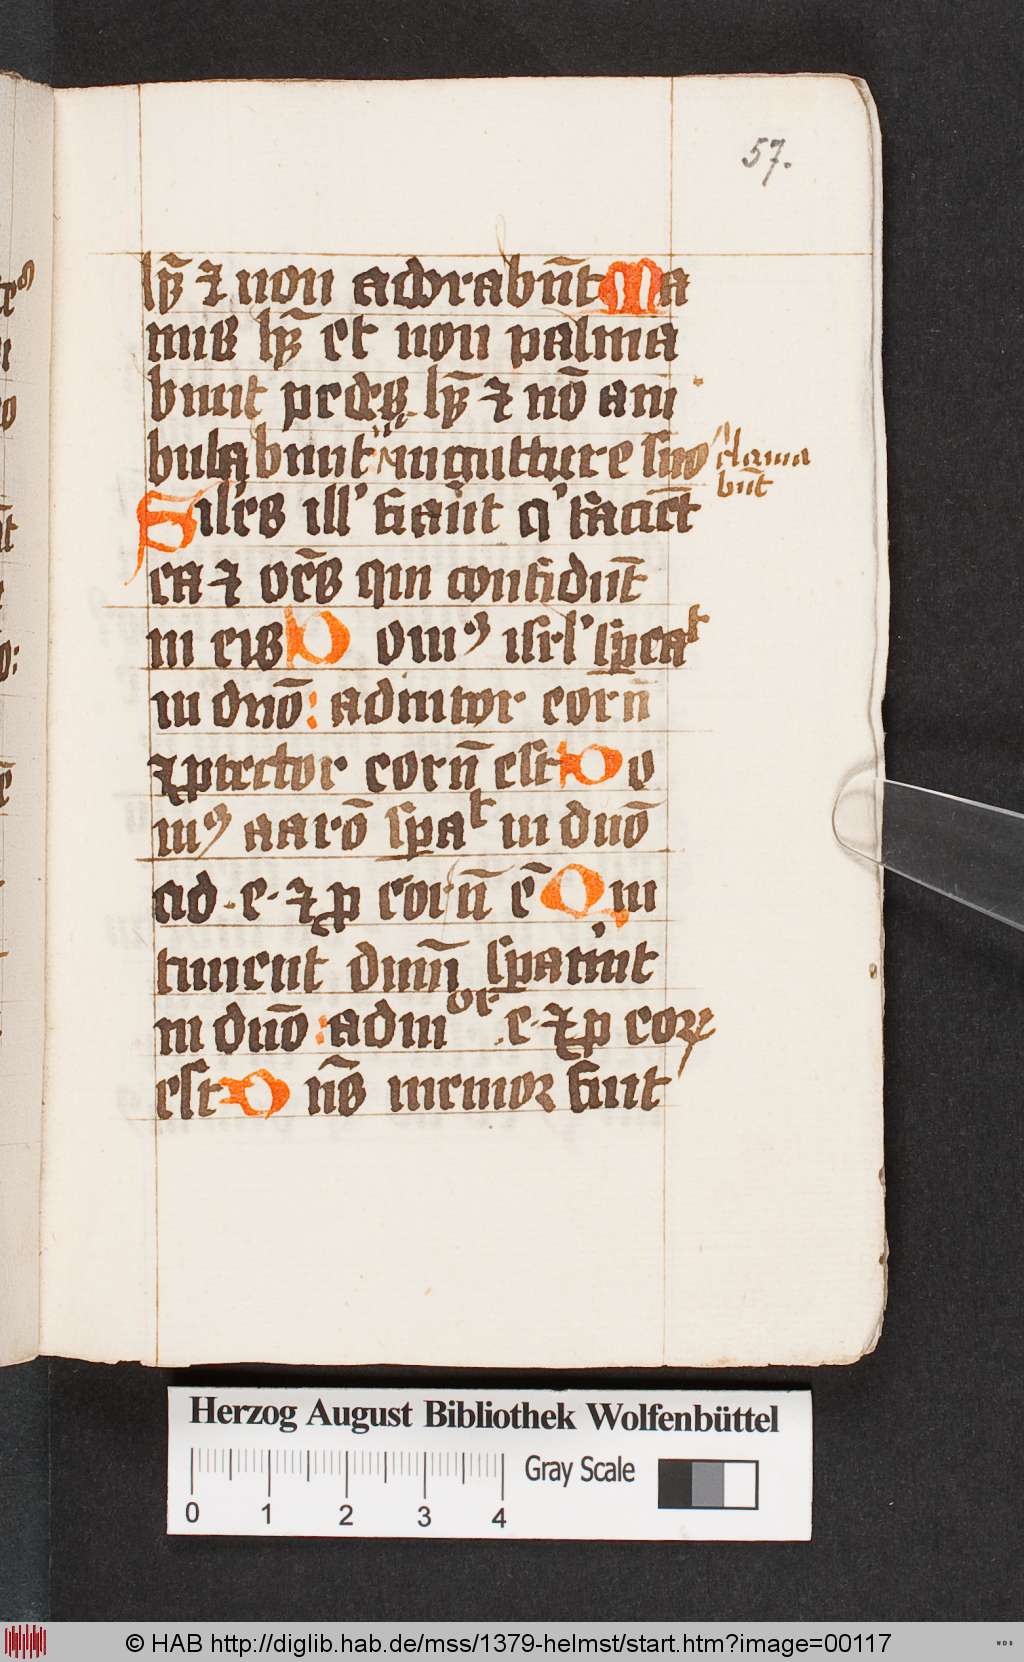 57.
hn̄t ⁊ non adorabn̄t Ma
nus hn̄t et non palpa
bunt pedes hn̄t ⁊ nō am
bulabunt nō in gutture suo clama
bn̄t
Siles ill' fiant q' faciūt
ea ⁊ om̄s qui confidūt
in eis Domꝰ isrl' speªt
in dn̄o : adiutor eorū
⁊ ptector eorū est Do
mꝰ aarō spaᵗ in dn̄o
ad · e · ⁊ p eorū ē Qui
timent dnm̄ spaūnt
in dn̄o : adiuᵒʳ · e · ⁊ p eoꝝ
est D n̄s memor fuit
Herzog August Bibliothek Wolfenbüttel
0 1 2 3 4
Gray Scale
© HAB http://diglib.hab.de/mss/1379-helmst/start.htm?image=00117